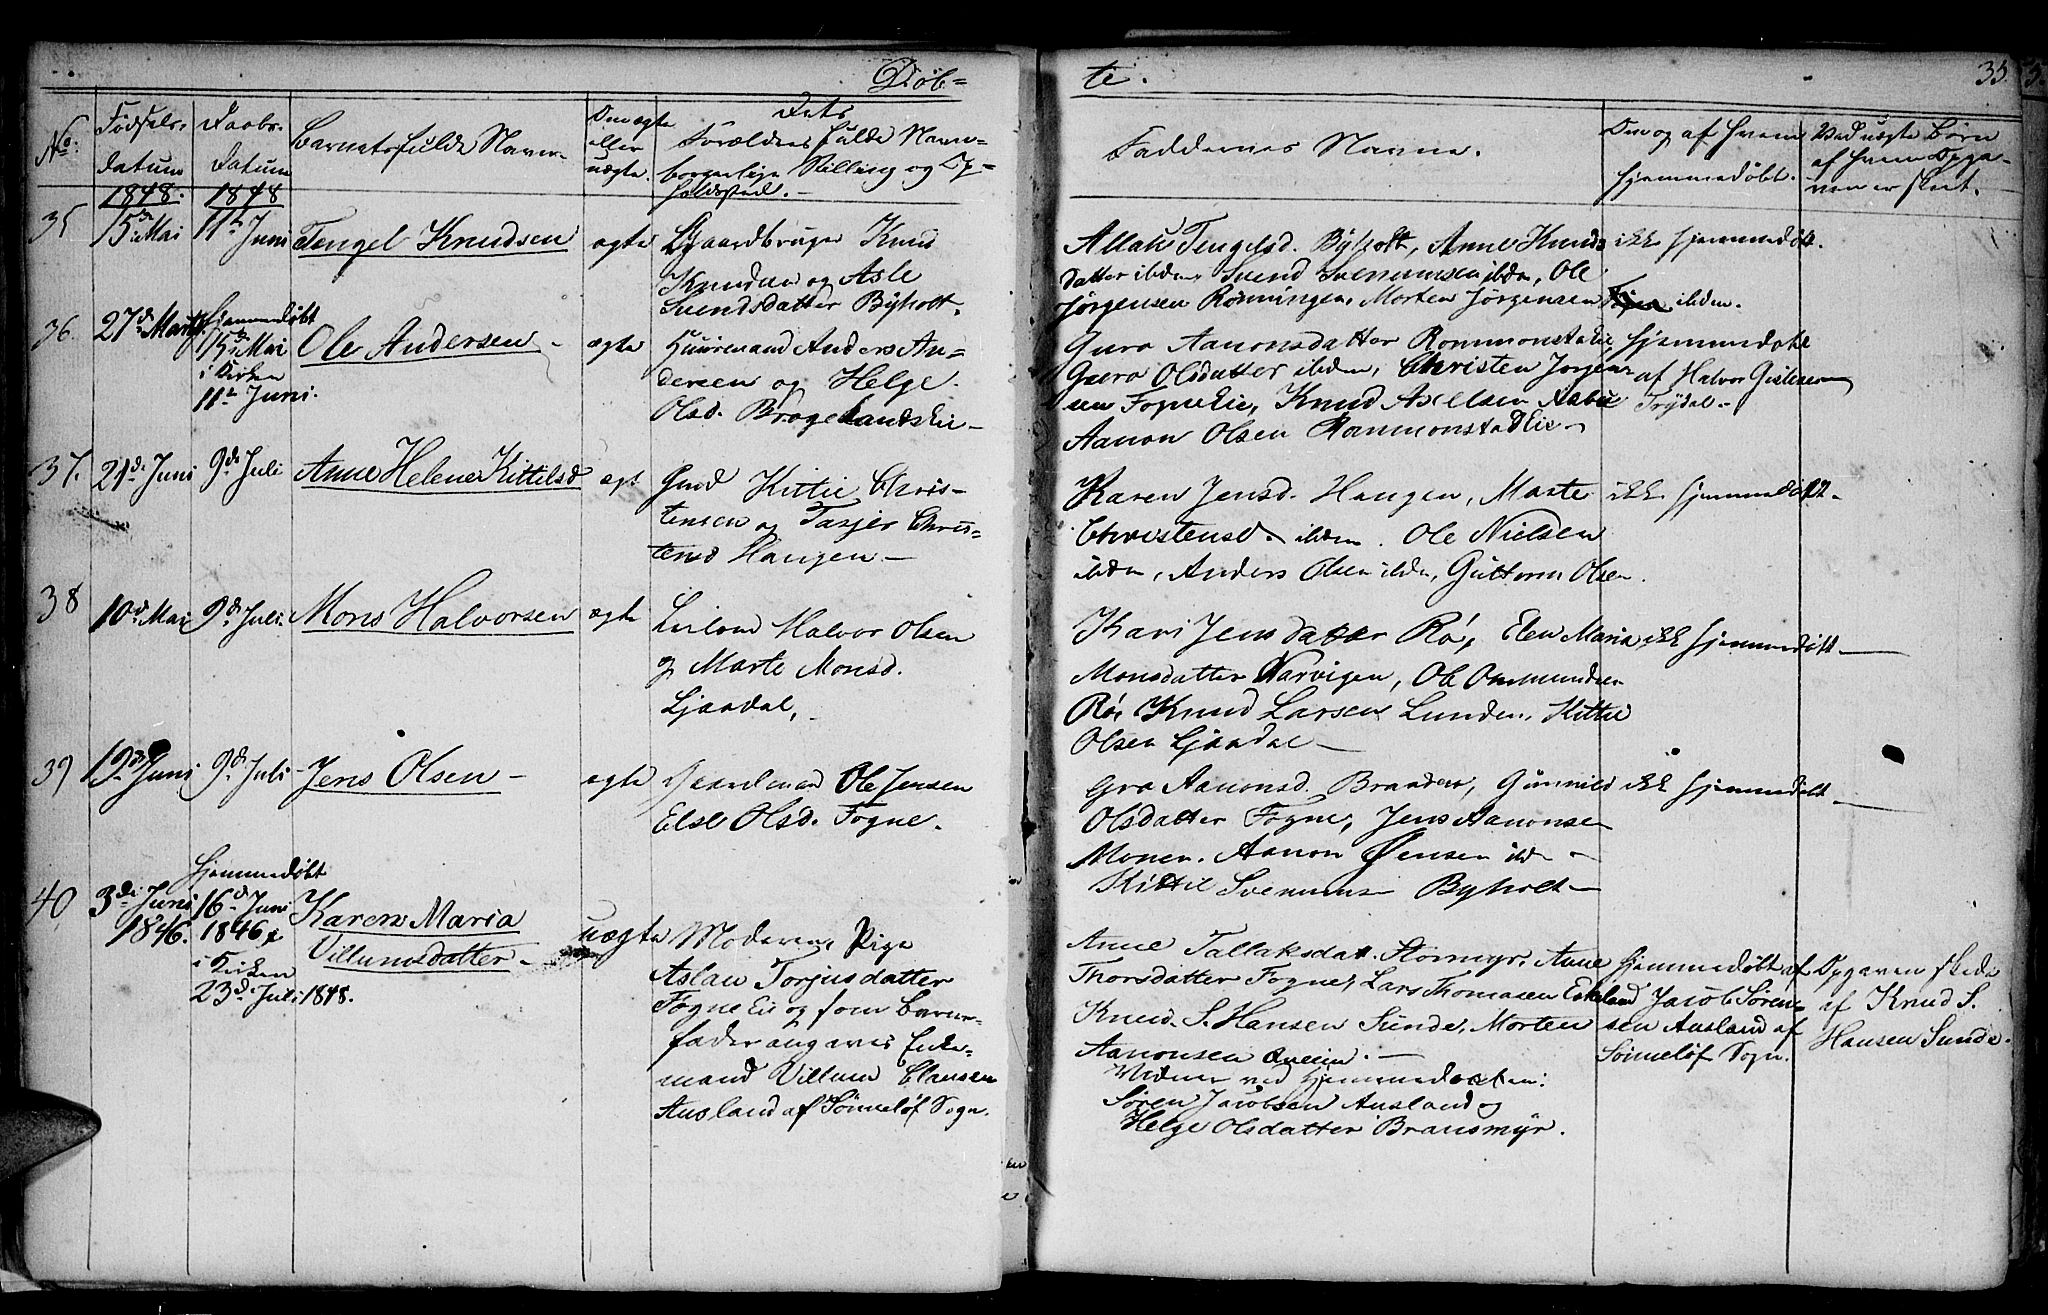 Døb=
te.
35
No:
Fødsels-
datum
1848.
Daabs-
Datum
1848
Barnets fulde Navn
Om ægte
eller
uægte.
Dets
Forældres fulde Navne
borgerlige Stilling og Op=
holdssted.
Faddernes Navne.
Om og af hvem
hjemmedøbt.
Ved uægte Børn
af hvem Opga-
ven er skeet.
35
15de Mai
11te Juni
Tengel Knudsen
ægte
Gaardbruger Knud
Knudsen og Asle
Svendsdatter Byholt.
Allak Tengelsd. Byholt, Anne Knuds
datter ibdm, Svend Svenumsen ibdm, Ole
Jørgensen Rønningen, Morten Jørgensen ibdm.
ikke hjemmedøbt.
36.
27de Marts
hjemmedøbt
15de Mai
i Kirken
11te Juni.
Ole Andersen
ægte
Huusmand Anders An=
dersen og Helge
Olsd. Bragelandslie
Guro Aanonsdatter Rommonstadlie
Guro Olsdatter ibdm, Christen Jørgen-
sen Fognelie, Knud Axelsen
Aanon Olsen Rommonstadlie
hjemmedøbt
af Halvor Gislesen
Trydal
37.
21de Juni
9de Juli
Anne Helene Kittilsd
ægt
Grmd Kittil Chris-
tensen og Tasjer Chris-
tensd Haugen
Karen Jensd. Haugen, Marte
Christensd. ibdm. Ole Nielsen
ibdm, Anders Olsen ibdm, Guttorm Olsen.
ikke hjemmedøbt
38
10de Mai
9de Juli.
Mons Halvorsen
ægte
Leilænd Halvor Olsen
og Marte Monsd.
Ljaadal,
Kari Jensdatter Rø, Elen Maria
Monsdatter Narvigen, Ole Ommundsen
Rø, Knud Larsen Lunden, Kittil
Olsen Ljaadal
ikke hjemmedøbt
39
19de Juni
9de Juli
Jens Olsen
ægte
Gaardmand Ole Jensen
Else Olsd. Fogne.
Gro Aanonsd. Braaden, Gunnild
Olsdatter Fogne, Jens Aanonsen
Monen. Aanon Jensen ibdm
Kittil Svenums Byholt
ikke hjemmedøbt
40
3de Juni
1846.
hjemmedøbt
16de Juni
1846,
i Kirken
23de Juli 1848.
Karen Maria
Villumsdatter
uægte
Moderen, Pige
Aslau Torjusdatter
Fognelie og som Barne-
fader angaves Enke-
mand Villum Clausen
Ausland af Sønneløf Sogn.
Anne Tallaksdat. Stormyr, Anne
Thorsdatter Fogne, Lars Thomasen Eskeland
Knud. S. Hansen Sunde, Morten
Aanonsen
Vidner ved hjemmedaaben:
Søren Jacobsen Ausland og
Helge Olsdatter Bransmyr.
hjemmedøbt af
Jacob Søren-
sen Ausland af
Sønneløf Sogn.
Opgaven skede
af Knud S.
Hansen Sunde.